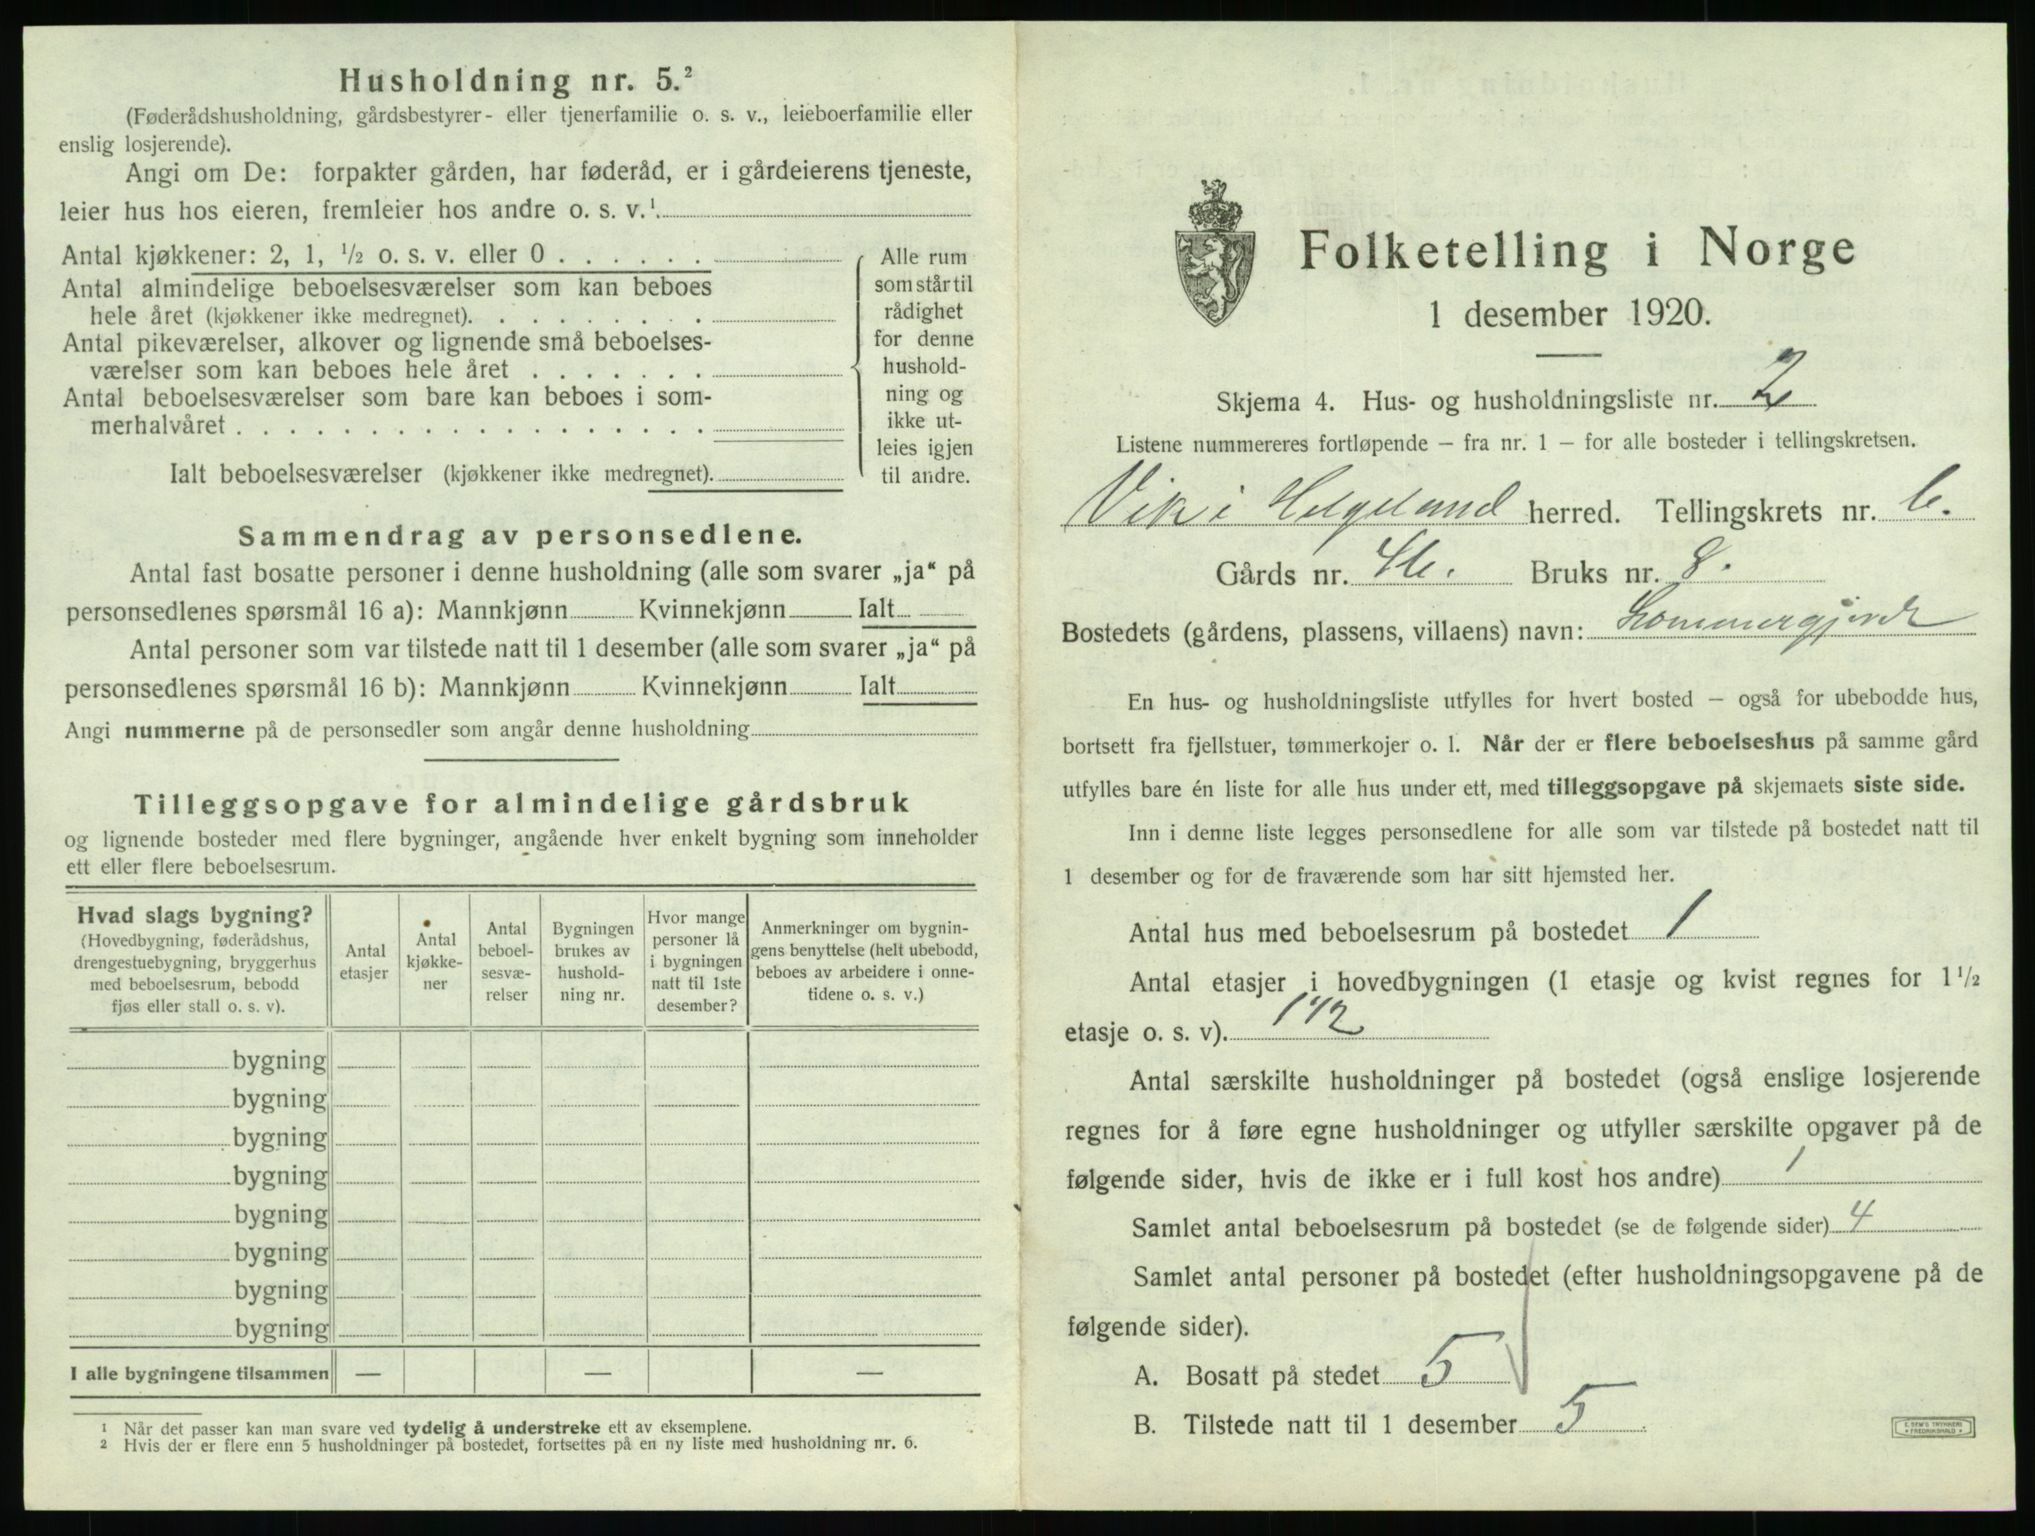 Husholdning nr. 5.²
(Føderådshusholdning, gårdsbestyrer- eller tjenerfamilie o. s. v., leieboerfamilie eller
enslig losjerende).
Angi om De: forpakter gården, har føderåd, er i gårdeierens tjeneste,
leier hus hos eieren, fremleier hos andre o. s. v.¹
Antal kjøkkener: 2, 1, ½ o. s. v. eller 0
Antal almindelige beboelsesværelser som kan beboes
hele året (kjøkkener ikke medregnet).
Antal pikeværelser, alkover og lignende små beboelses-
værelser som kan beboes hele året
Antal beboelsesværelser som bare kan beboes i som-
merhalvåret
Ialt beboelsesværelser (kjøkkener ikke medregnet).
Alle rum
som står til
rådighet
for denne
hushold-
ning og
ikke ut-
leies igjen
til andre.
Sammendrag av personsedlene.
Antal fast bosatte personer i denne husholdning (alle som svarer „ja“ på
personsedlenes spørsmål 16 a): Mannkjønn Kvinnekjønn Ialt
Antal personer som var tilstede natt til 1 desember (alle som svarer „ja“ på
personsedlenes spørsmål 16 b): Mannkjønn Kvinnekjønn Ialt
Angi nummerne på de personsedler som angår denne husholdning
Tilleggsopgave for almindelige gårdsbruk
og lignende bosteder med flere bygninger, angående hver enkelt bygning som inneholder
ett eller flere beboelsesrum.
Hvad slags bygning?
(Hovedbygning, føderådshus,
drengestuebygning, bryggerhus
med beboelsesrum, bebodd
fjøs eller stall o. s. v).
Antal
etasjer
Antal
kjøkke-
ner
Antal
beboel-
sesvæ-
relser
Bygningen
brukes av
hushold-
ning nr.
Hvor mange
personer lå
i bygningen
natt til 1ste
desember?
Anmerkninger om bygnin-
gens benyttelse (helt ubebodd,
beboes av arbeidere i onne-
tidene o. s. v.)
bygning
bygning
bygning
bygning
bygning
bygning
bygning
bygning
I alle bygningene tilsammen — — —
¹ Når det passer kan man svare ved tydelig å understreke ett av eksemplene.
² Hvis der er flere enn 5 husholdninger på bostedet, fortsettes på en ny liste med husholdning nr. 6.
Folketelling i Norge
1 desember 1920.
Skjema 4. Hus- og husholdningsliste nr. 2
Listene nummereres fortløpende – fra nr. 1 – for alle bosteder i tellingskretsen.
Vik i Helgeland herred. Tellingskrets nr. 6.
Gårds nr. 46. Bruks nr. 8.
Bostedets (gårdens, plassens, villaens) navn:
En hus- og husholdningsliste utfylles for hvert bosted – også for ubebodde hus,
bortsett fra fjellstuer, tømmerkojer o. l. Når der er flere beboelseshus på samme gård
utfylles bare én liste for alle hus under ett, med tilleggsopgave på skjemaets siste side.
Inn i denne liste legges personsedlene for alle som var tilstede på bostedet natt til
1 desember og for de fraværende som har sitt hjemsted her.
Antal hus med beboelsesrum på bostedet 1
Antal etasjer i hovedbygningen (1 etasje og kvist regnes for 1 ½
etasje o. s. v). 1 1/2
Antal særskilte husholdninger på bostedet (også enslige losjerende
regnes for å føre egne husholdninger og utfyller særskilte opgaver på de
følgende sider, hvis de ikke er i full kost hos andre) 1
Samlet antal beboelsesrum på bostedet (se de følgende sider) 4
Samlet antal personer på bostedet (efter husholdningsopgavene på de
følgende sider).
A. Bosatt på stedet 5
B. Tilstede natt til 1 desember 5